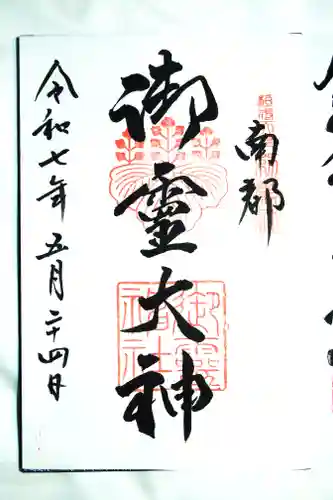 南都
御靈大神
御霊神社
令和七年五月二十四日